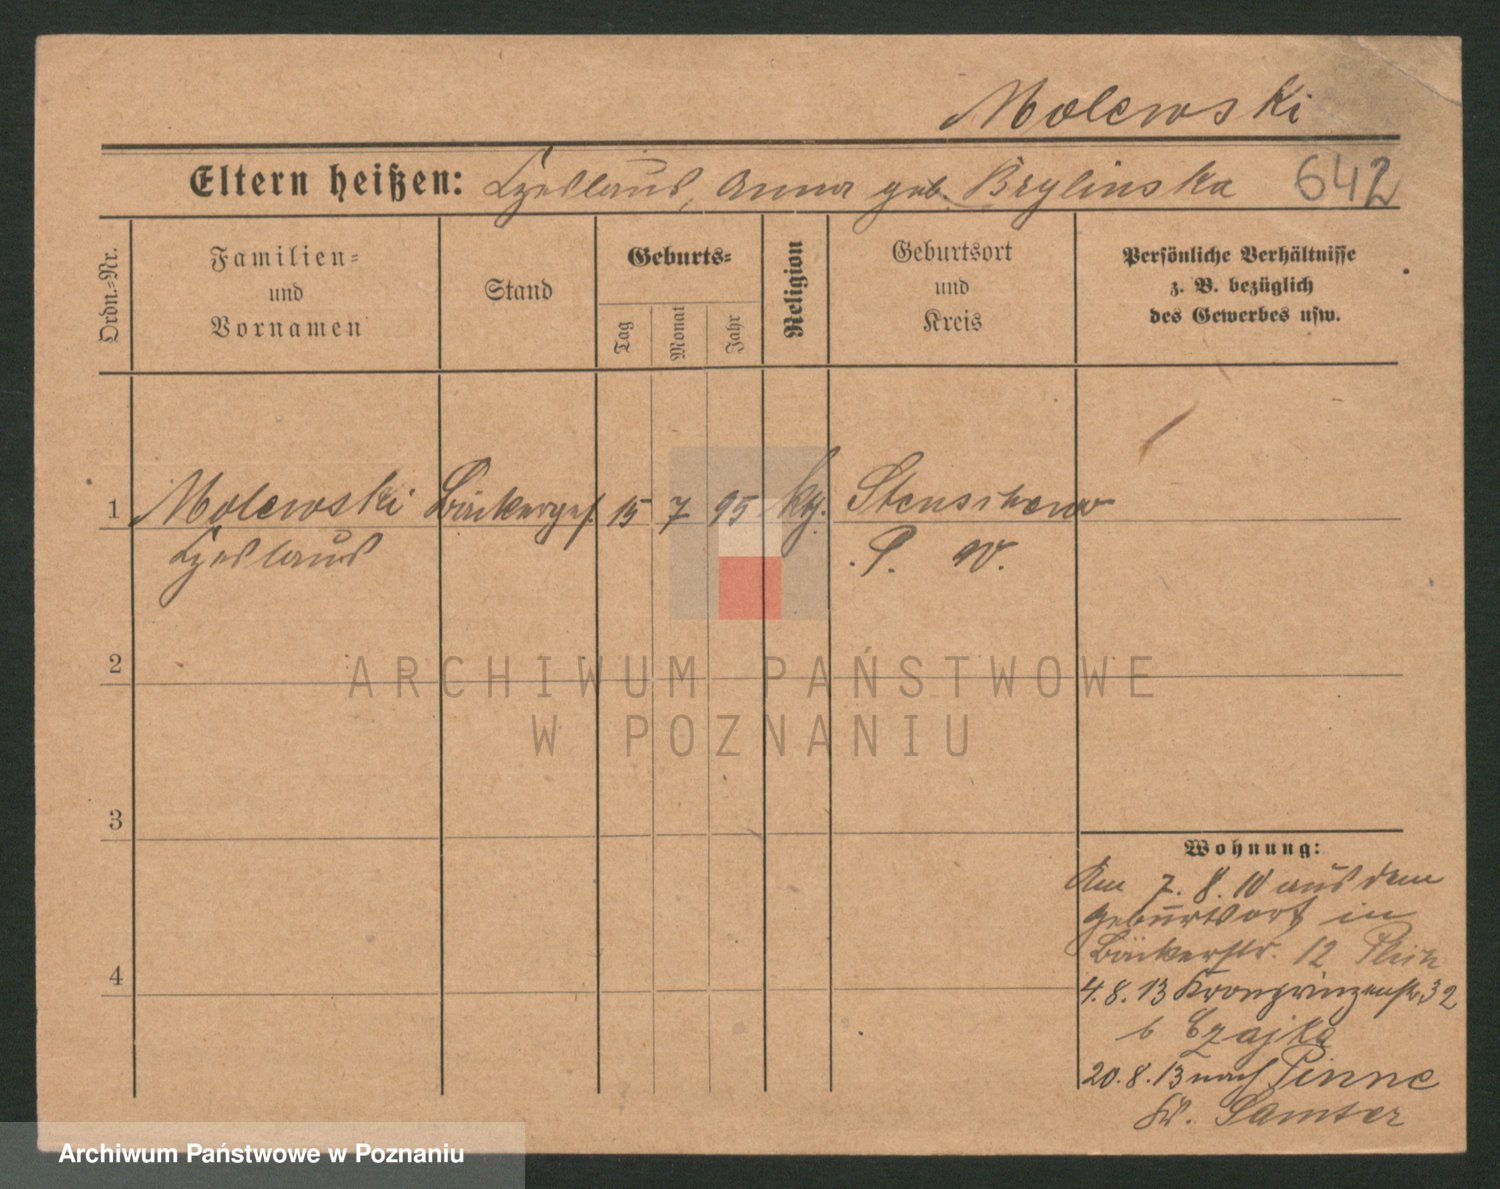 Molewski
Eltern heißen: Czeslaus, Anna geb. Brylinska 642
Ordn.-Nr.
Familien-
und
Vornamen
Stand
Geburts-
Tag
Monat
Jahr
Religion
Geburtsort
und
Kreis
Persönliche Verhältnisse
z. B. bezüglich
des Gewerbes usw.
1 Molewski Bäckerges. 15 7 95 kg. Stenschewo
Czeslaus P. W.
2
ARCHIWUM PAŃSTWOWE
W POZNANIU
3
Wohnung:
Am 7. 8. 10 aus dem
Geburtsort in
Bäckerstr. 12
4
4. 8. 13 Kronprinzenstr 32
b Czajka
20. 8. 13 nach Pinne
Kr. Samter
Archiwum Państwowe w Poznaniu